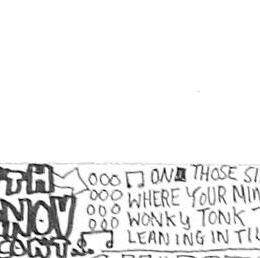 TH
NOV
CONT.
ON THOSE
WHERE YOUR
WONKY TONK
LEANING IN